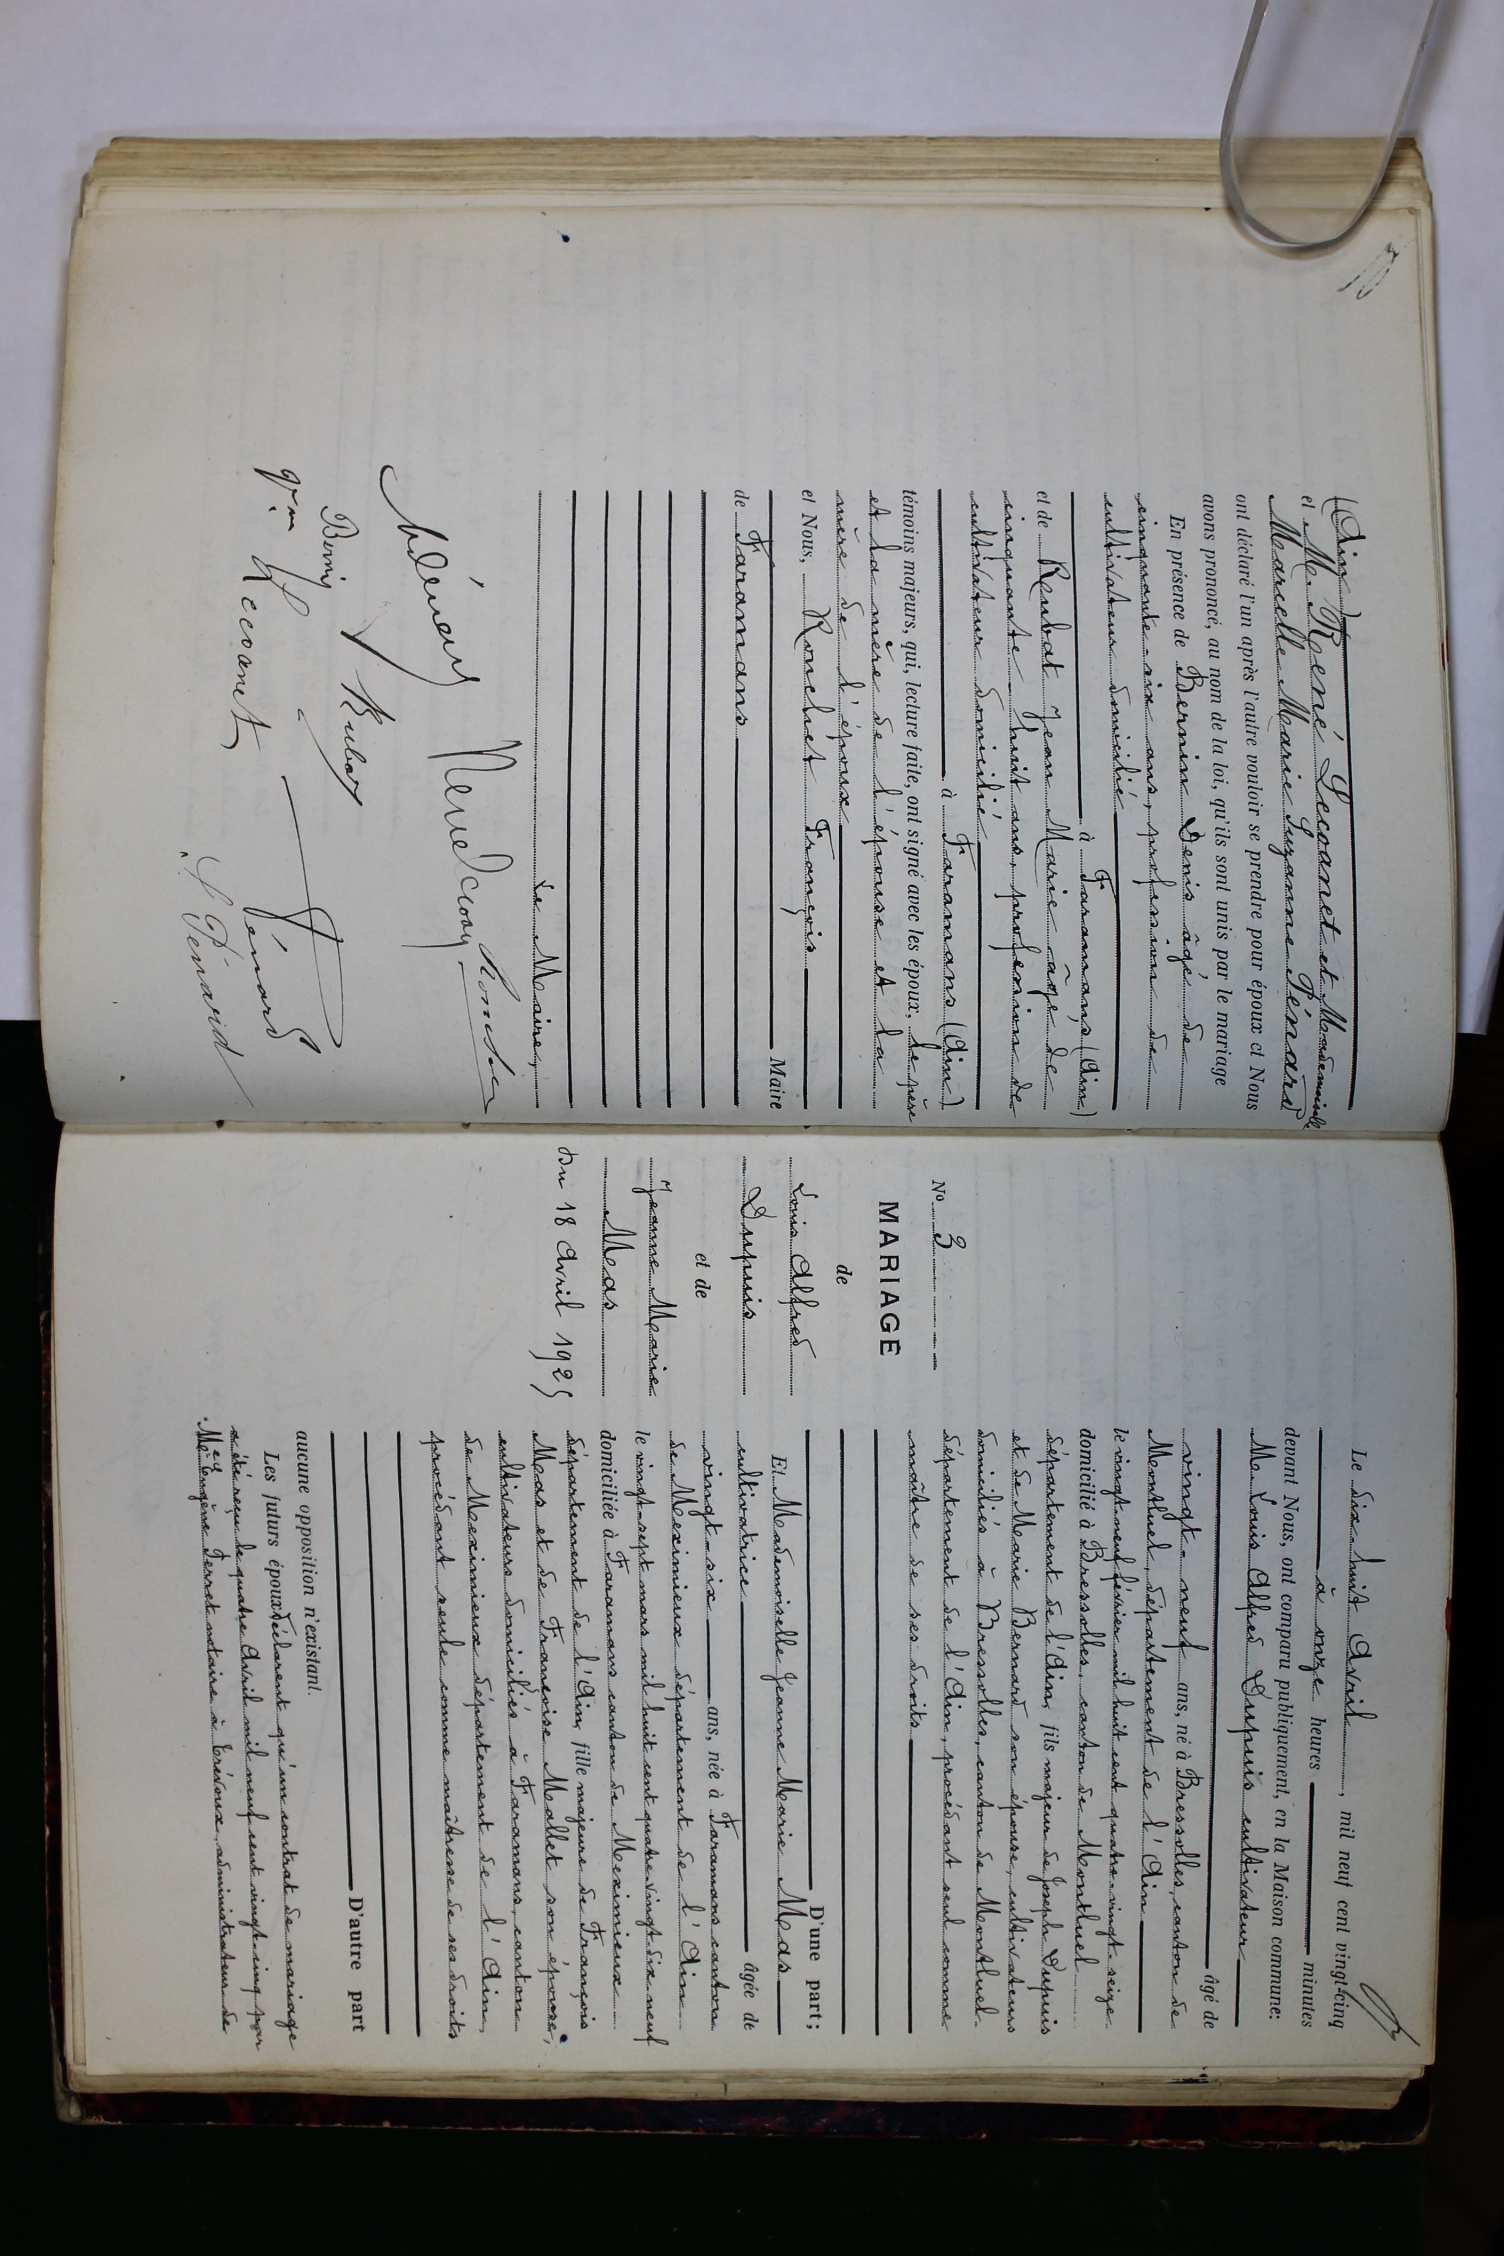 (Ain)
et M. René Lecoanet et Mademoiselle
Marcelle Marie Suzanne Pénard
ont déclaré l'un après l'autre vouloir se prendre pour époux et Nous
avons prononcé, au nom de la loi, qu'ils sont unis par le mariage
En présence de Bernin Denis âgé de
cinquante-six ans, profession de
cultivateur domicilié
à Faramans (Ain)
et de Renbat Jean Marie âgé de
cinquante-huit ans, profession de
cultivateur domicilié
à Faramans (Ain)
témoins majeurs, qui, lecture faite, ont signé avec les époux, le père
et la mère de l'épouse et la
mère de l'époux
et Nous, Ronchet François
Maire
de Faramans
Le Maire,
Ronchet
Pénard
Lecoanet
S Pénard
No 3
MARIAGE
de
Louis Alfred
Dupuis
et de
Jeanne Marie
Mas
Du 18 Avril 1925
Le dix-huit Avril, mil neuf cent vingt-cinq
à onze heures minutes
devant Nous, ont comparu publiquement, en la Maison commune:
M. Louis Alfred Dupuis cultivateur
âgé de
vingt-neuf ans, né à Bressolles, canton de
Montluel, département de l'Ain
le vingt-neuf février mil huit cent quatre-vingt-seize
domicilié à Bressolles, canton de Montluel
département de l'Ain, fils majeur de Joseph Dupuis
et de Marie Bernard son épouse, cultivateurs
domiciliés à Bressolles, canton de Montluel
département de l'Ain, procédant seul comme
maître de ses droits
D'une part;
Et Mademoiselle Jeanne Marie Mas
cultivatrice âgée de
vingt-six ans, née à Faramans canton
de Meximieux département de l'Ain
le vingt-sept mars mil huit cent quatre-vingt-dix-neuf
domiciliée à Faramans canton de Meximieux
département de l'Ain, fille majeure de François
Mas et de Françoise Mallet son épouse,
cultivateurs domiciliés à Faramans, canton
de Meximieux département de l'Ain,
procédant seule comme maîtresse de ses droits
D'autre part
aucune opposition n'existant.
Les futurs époux déclarent qu'un contrat de mariage
a été reçu le quatre Avril mil neuf cent vingt-cinq par
Me Eugène Ferret notaire à Trévoux, administrateur de